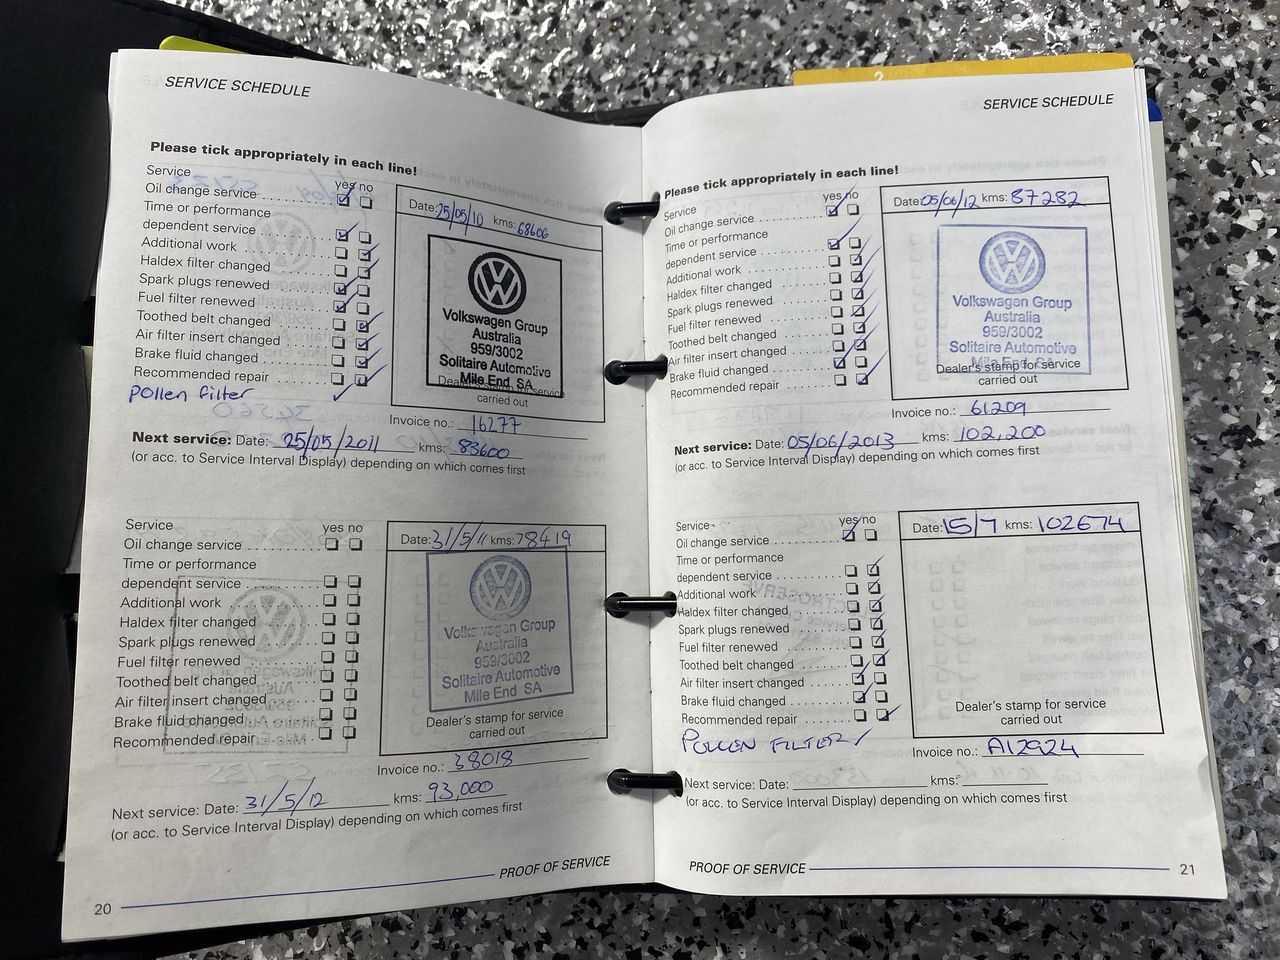 SERVICE SCHEDULE
Please tick appropriately in each line!
Service
yes no
Oil change service
Time or performance
dependent service
Additional work
Haldex filter changed
Spark plugs renewed
Fuel filter renewed
Toothed belt changed
Air filter insert changed
Brake fluid changed
Recommended repair
pollen filter
Date: 25/05/10 kms: 68606
Volkswagen Group
Australia
959/3002
Solitaire Automotive
Mile End SA
Dealer's stamp for service
carried out
Invoice no.: 16277
Next service: Date: 25/05/2011 kms: 83600
(or acc. to Service Interval Display) depending on which comes first
Service
yes no
Oil change service
Time or performance
dependent service
Additional work
Haldex filter changed
Spark plugs renewed
Fuel filter renewed
Toothed belt changed
Air filter insert changed
Brake fluid changed
Recommended repair
Date: 31/5/11 kms: 78419
Volkswagen Group
Australia
959/3002
Solitaire Automotive
Mile End SA
Dealer's stamp for service
carried out
Invoice no.: 38018
Next service: Date: 31/5/12 kms: 93,000
(or acc. to Service Interval Display) depending on which comes first
PROOF OF SERVICE
20
2
SERVICE SCHEDULE
Please tick appropriately in each line!
Service
yes no
Oil change service
Time or performance
dependent service
Additional work
Haldex filter changed
Spark plugs renewed
Fuel filter renewed
Toothed belt changed
Air filter insert changed
Brake fluid changed
Recommended repair
Date: 05/06/12 kms: 87282
Volkswagen Group
Australia
959/3002
Solitaire Automotive
Mile End SA
Dealer's stamp for service
carried out
Invoice no.: 61209
Next service: Date: 05/06/2013 kms: 102,200
(or acc. to Service Interval Display) depending on which comes first
Service
yes no
Oil change service
Time or performance
dependent service
Additional work
Haldex filter changed
Spark plugs renewed
Fuel filter renewed
Toothed belt changed
Air filter insert changed
Brake fluid changed
Recommended repair
POLLEN FILTER
Date: 15/7 kms: 102674
Dealer's stamp for service
carried out
Invoice no.: A12924
Next service: Date: kms:
(or acc. to Service Interval Display) depending on which comes first
PROOF OF SERVICE
21